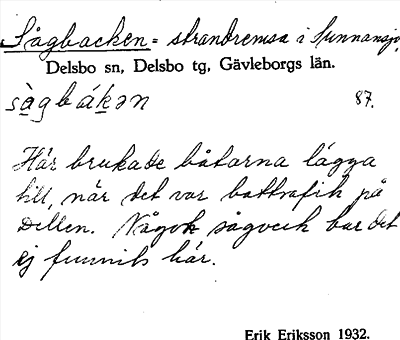 Sågbacken = strandremsa i Sunnansjö,
Delsbo sn, Delsbo tg, Gävleborgs län.
sågbákən 87.
Här brukade båtarna lägga
till, när det var båttrafik på
Dellen. Något sågverk har det
ej funnits här.
Erik Eriksson 1932.